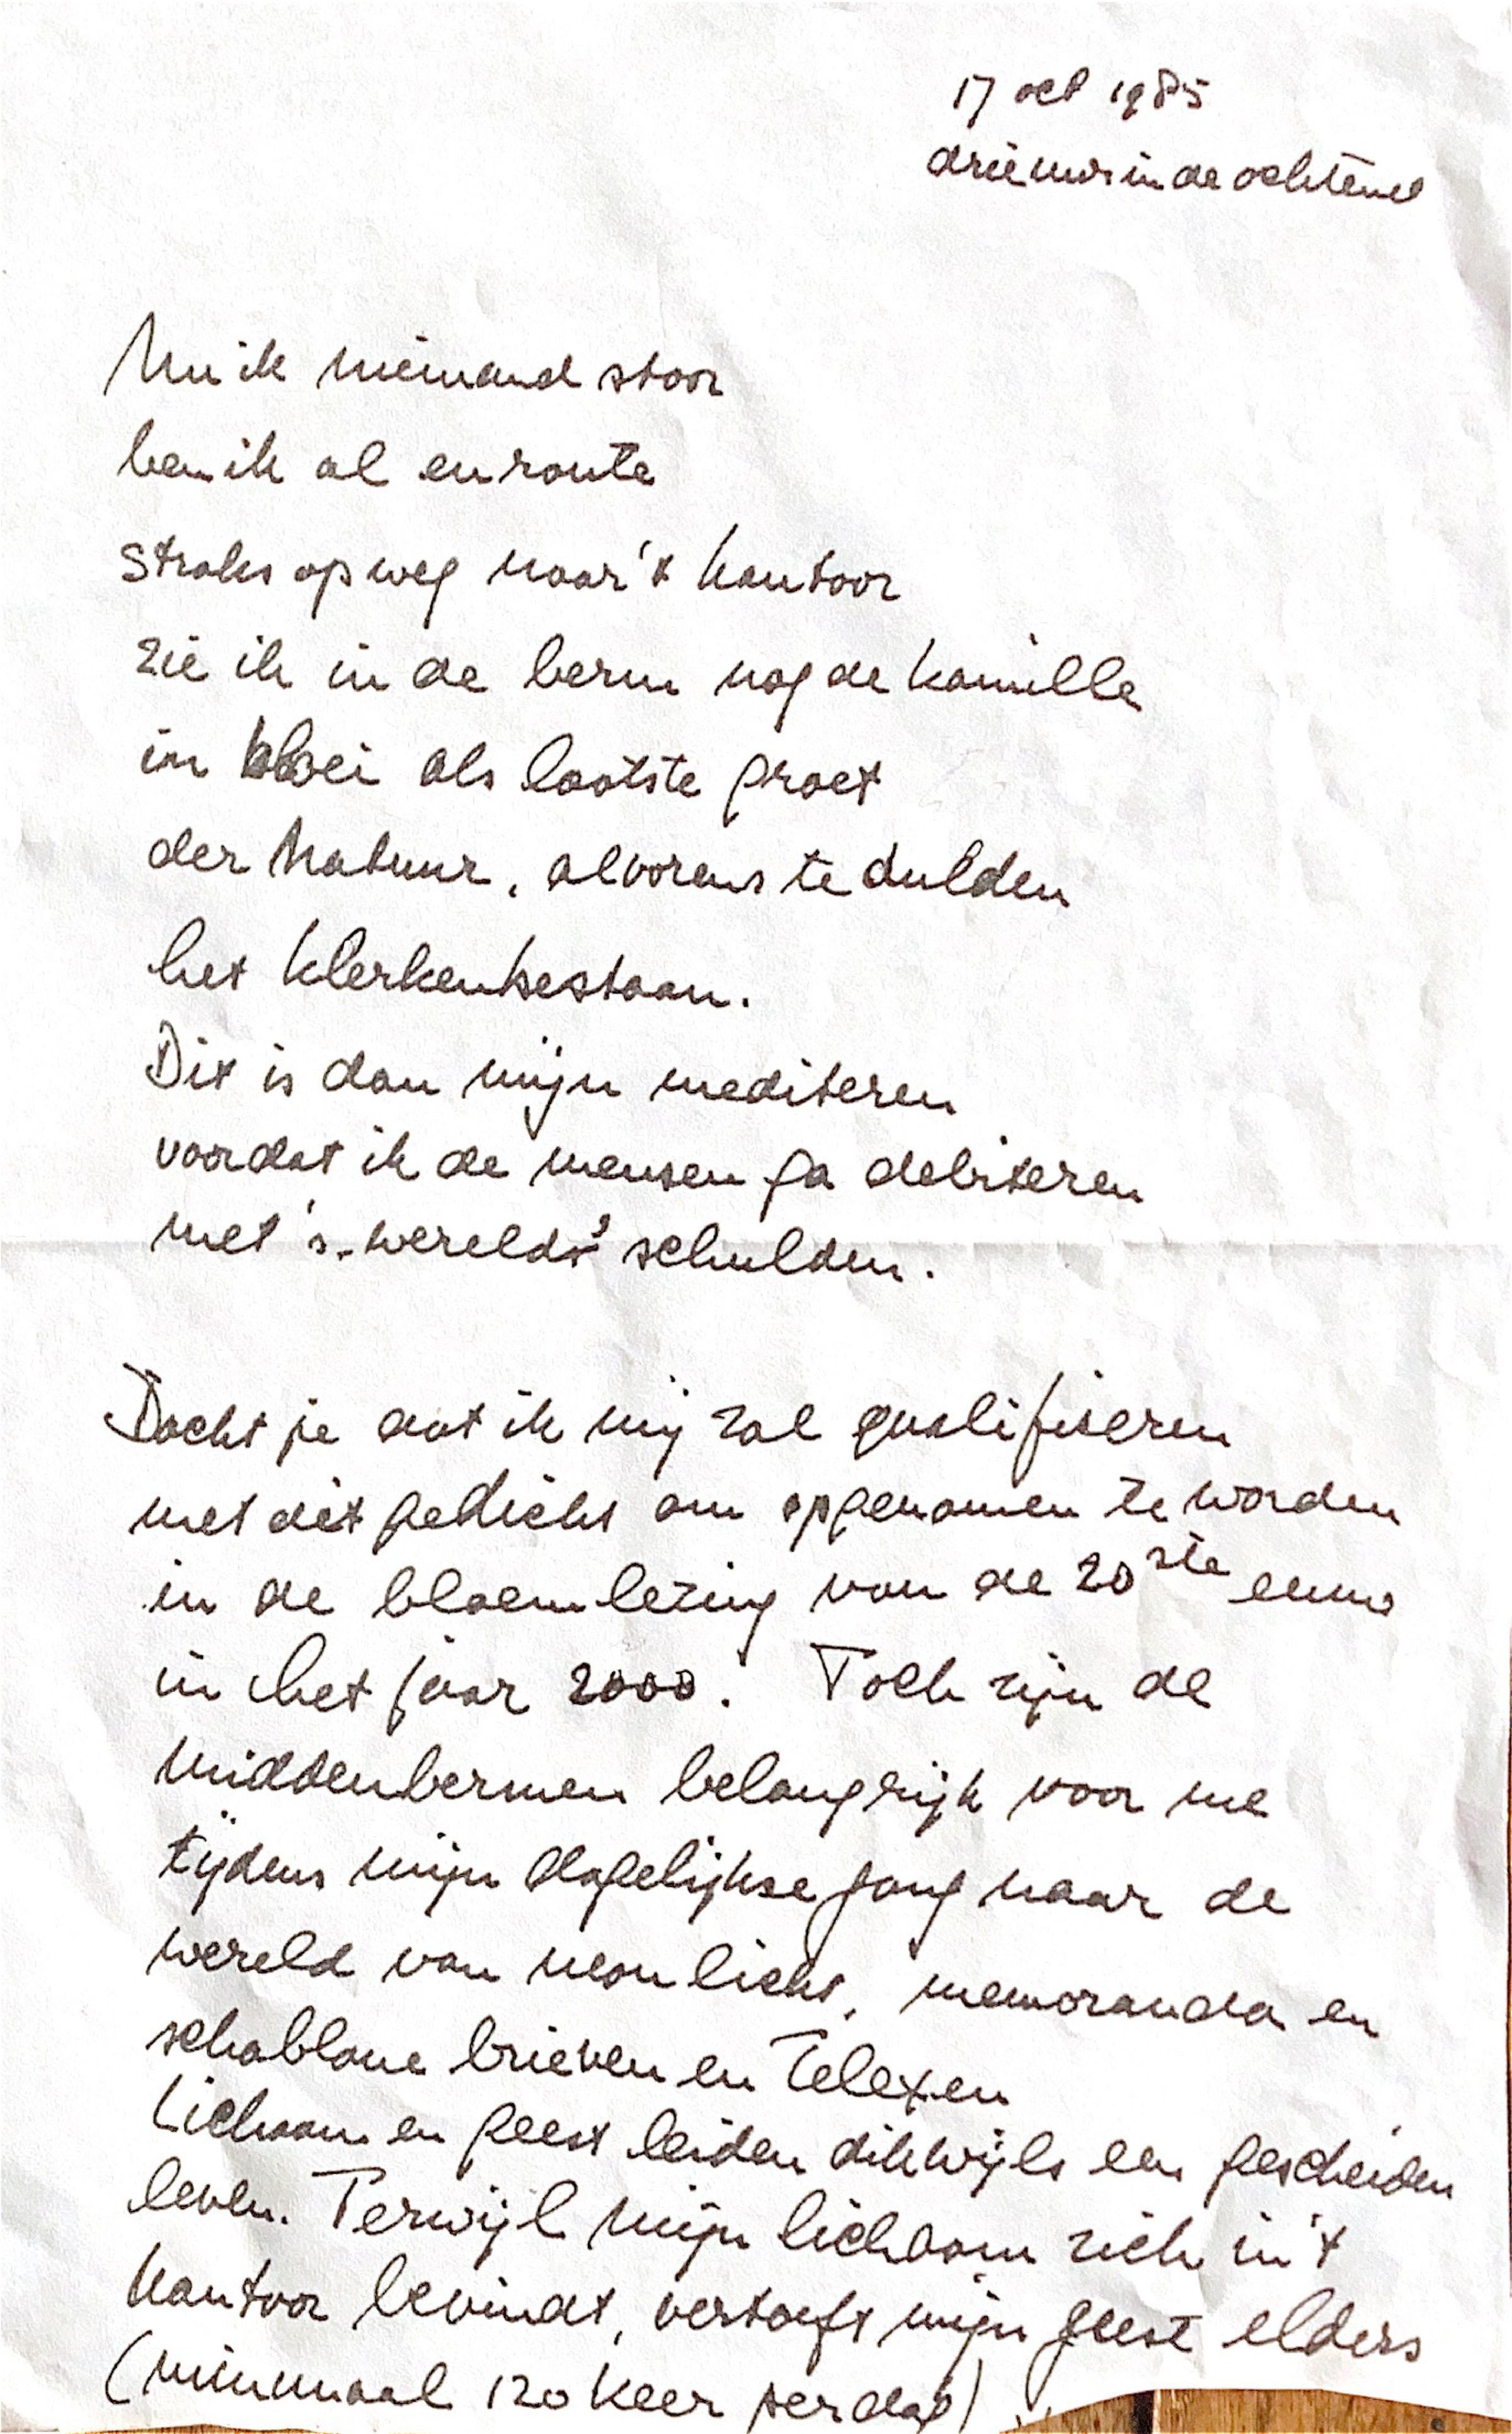 17 oct 1985
drie uur in de ochtend
Nu ik niemand stoor
ben ik al en route
straks op weg naar 't kantoor
zie ik in de berm nog de kamille
in bloei als laatste groet
der Natuur, alvorens te dulden
het klerkenbestaan.
Dit is dan mijn mediteren
voordat ik de mensen ga debiteren
met 's werelds' schulden.
Dacht je dat ik mij zal qualificeren
met dit gedicht om opgenomen te worden
in de bloemlezing van de 20ste eeuw
in het jaar 2000. Toch zijn de
middenbermen belangrijk voor me
tijdens mijn dagelijkse gang naar de
wereld van neonlicht, memoranda en
schablone brieven en Telexen
Lichaam en geest leiden dikwijls een gescheiden
leven. Terwijl mijn lichaam zich in 't
kantoor bevindt, vertoeft mijn geest elders
(minimaal 120 keer per dag)